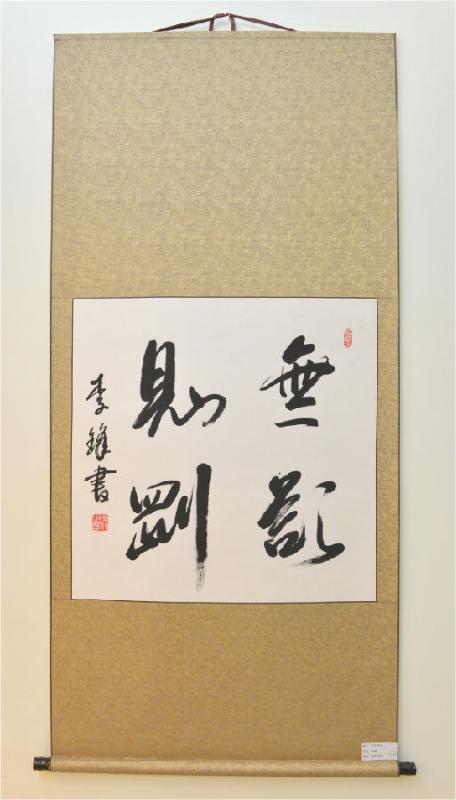 無欲
則剛
李鋒書